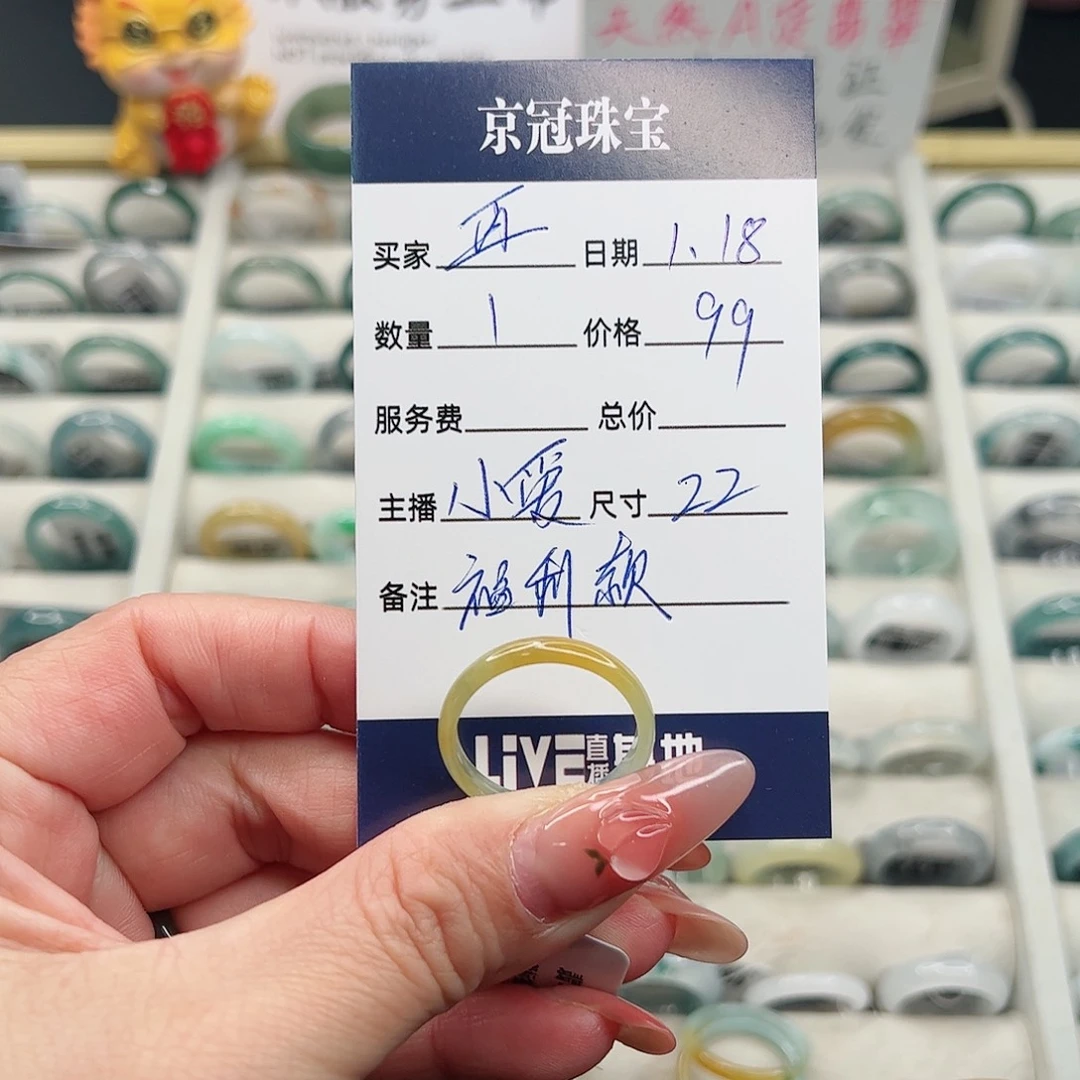 天然A货翡翠
京冠珠宝
买家 日期 1.18
数量 1 价格 99
服务费 总价
主播 小爱 尺寸 22
备注 福利款
LiVE 直播基地